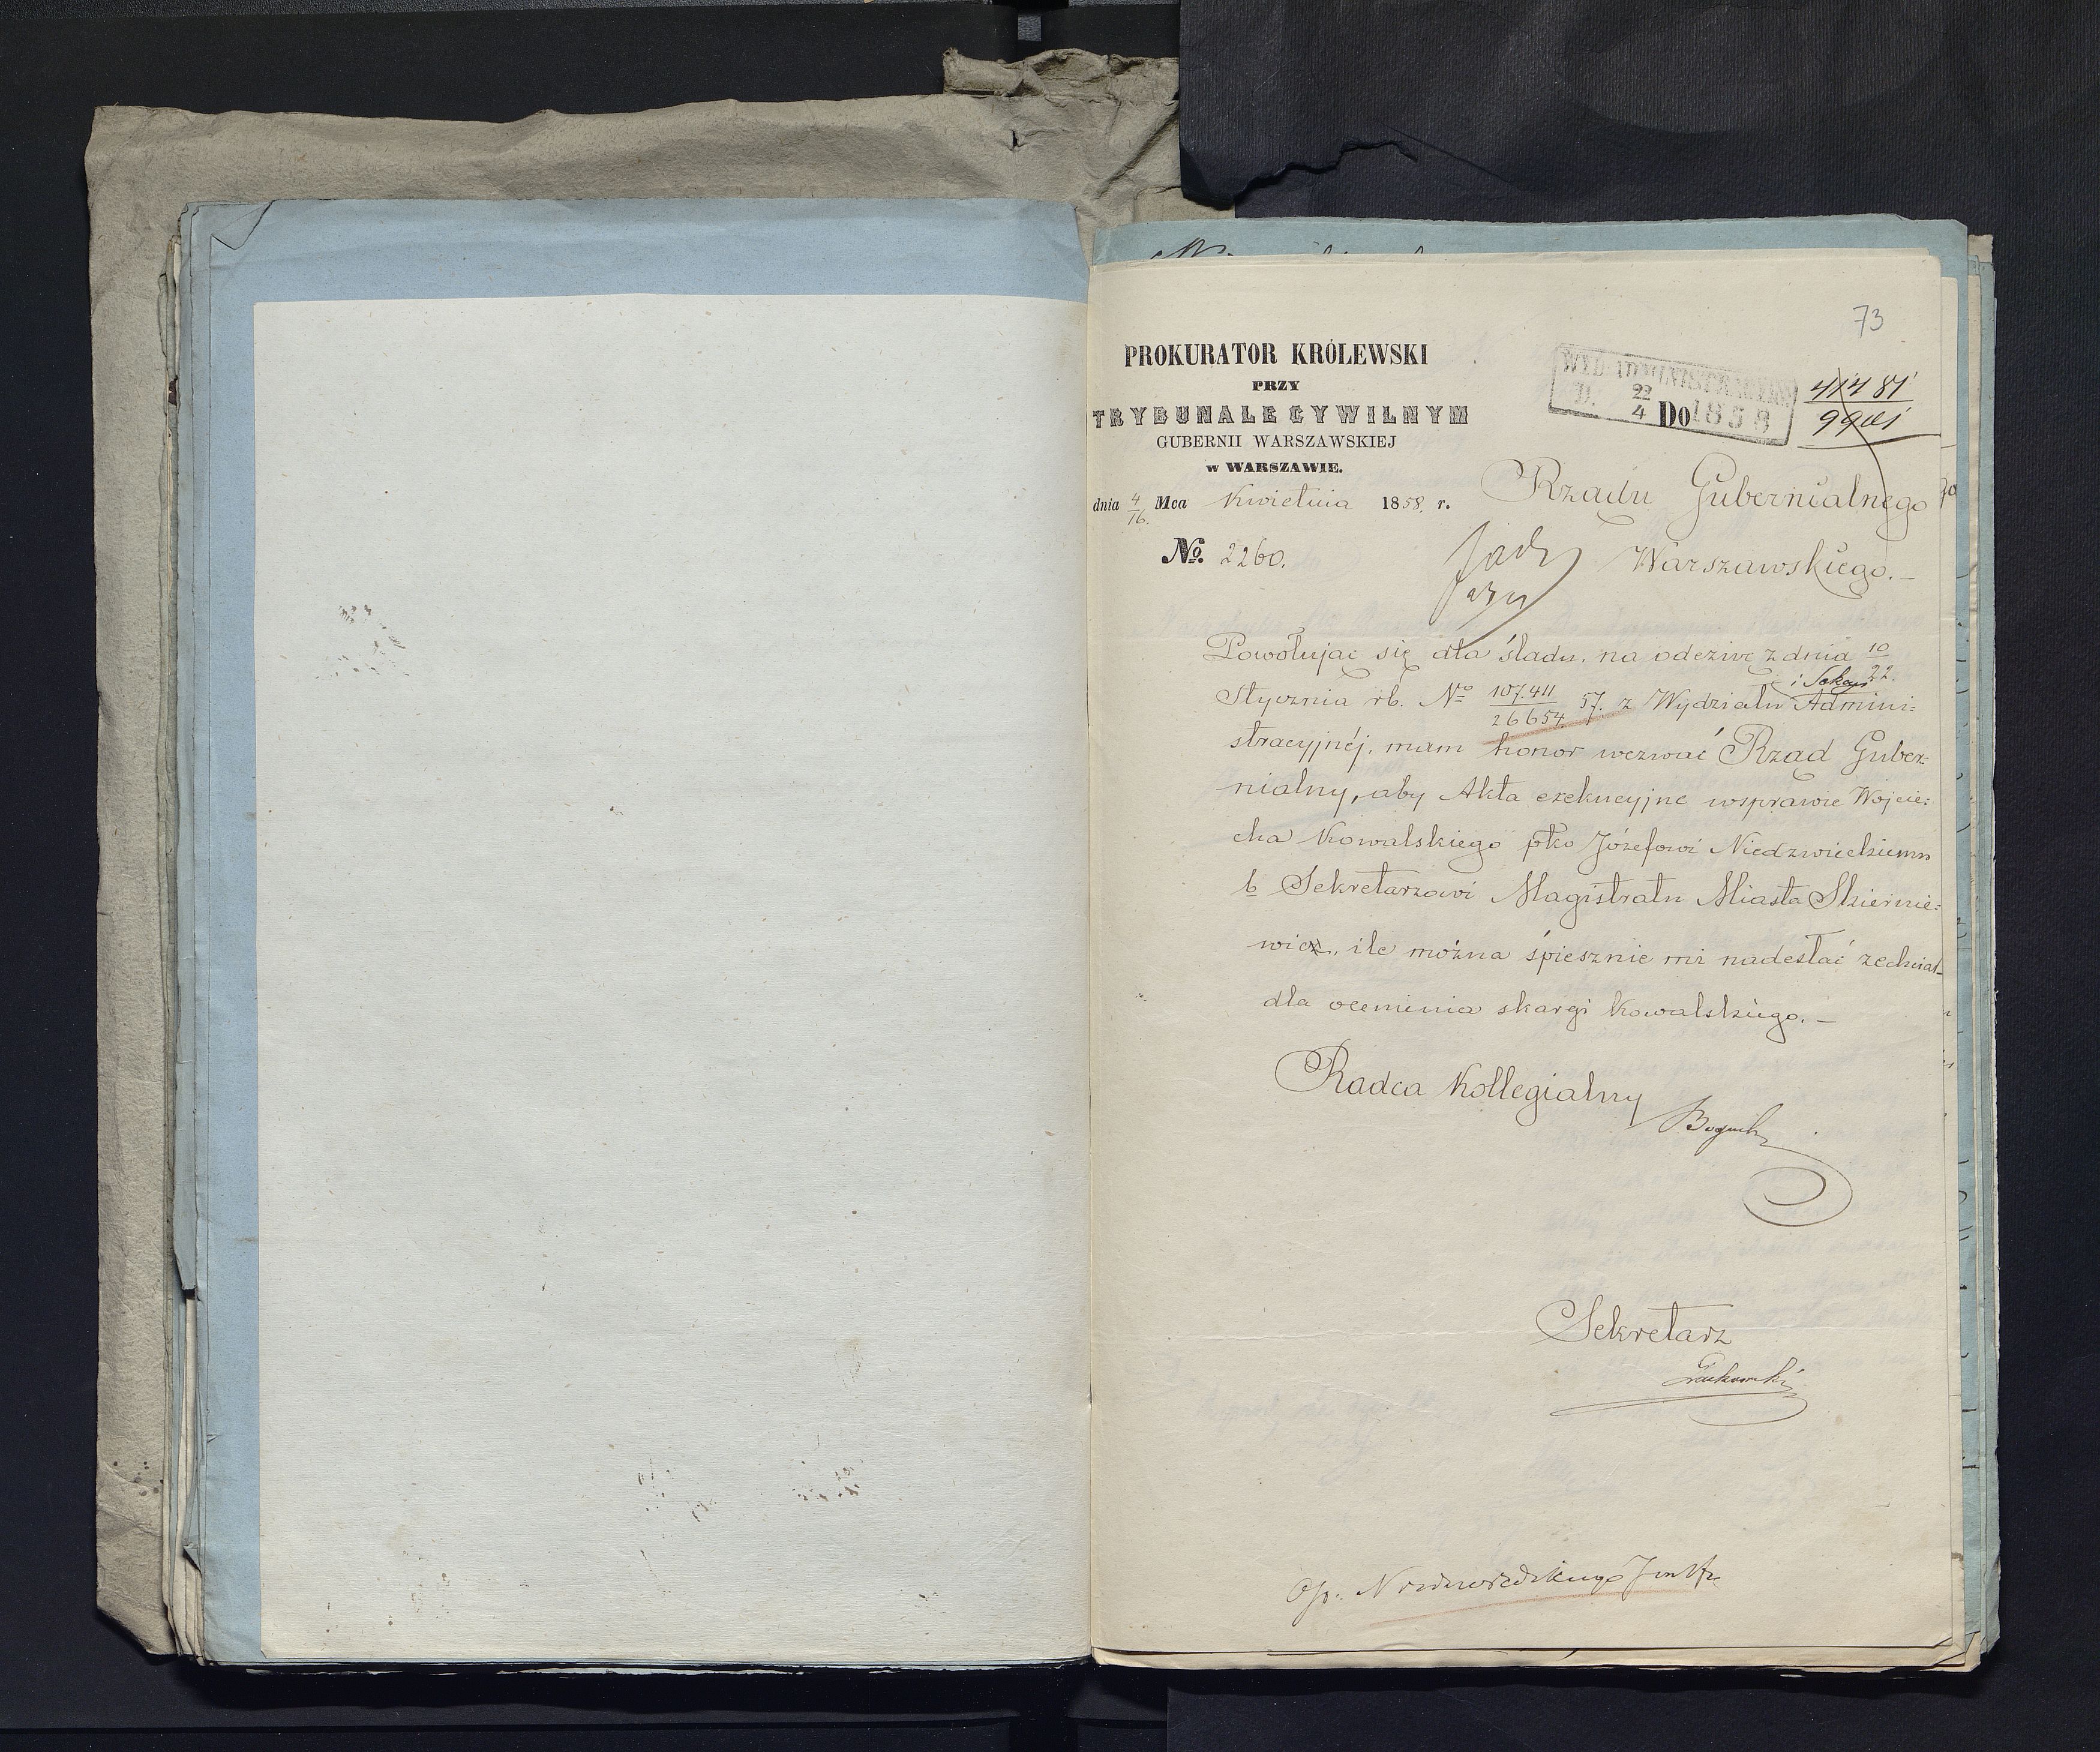 73
PROKURATOR KRÓLEWSKI
PRZY
TRYBUNALE CYWILNYM
GUBERNII WARSZAWSKIEJ
w WARSZAWIE.
WYD. ADMINISTRACYJNY
D. 22/4 1858
41481
Do
dnia 4/16. Mca Kwietnia 1858. r.
Rządu Gubernialnego
No. 2260.
Warszawskiego.—
Powołując się dla śladu, na odezwę z dnia 10/22.
Stycznia rb. No 107.411/26654 57. z Wydziału i Sekcyi Admini=
stracyjnéj, mam honor wezwać Rząd Guber=
nialny, aby Akta exekucyjne wsprawie Wojcie=
cha Kowalskiego pko Józefowi Niedzwieckiemu
b Sekretarzowi Magistratu Miasta Skiernie=
wic, ile można śpiesznie mi nadesłać zechciał
dla ocenienia skargi Kowalskiego.—
Radca Kollegialny
Sekretarz